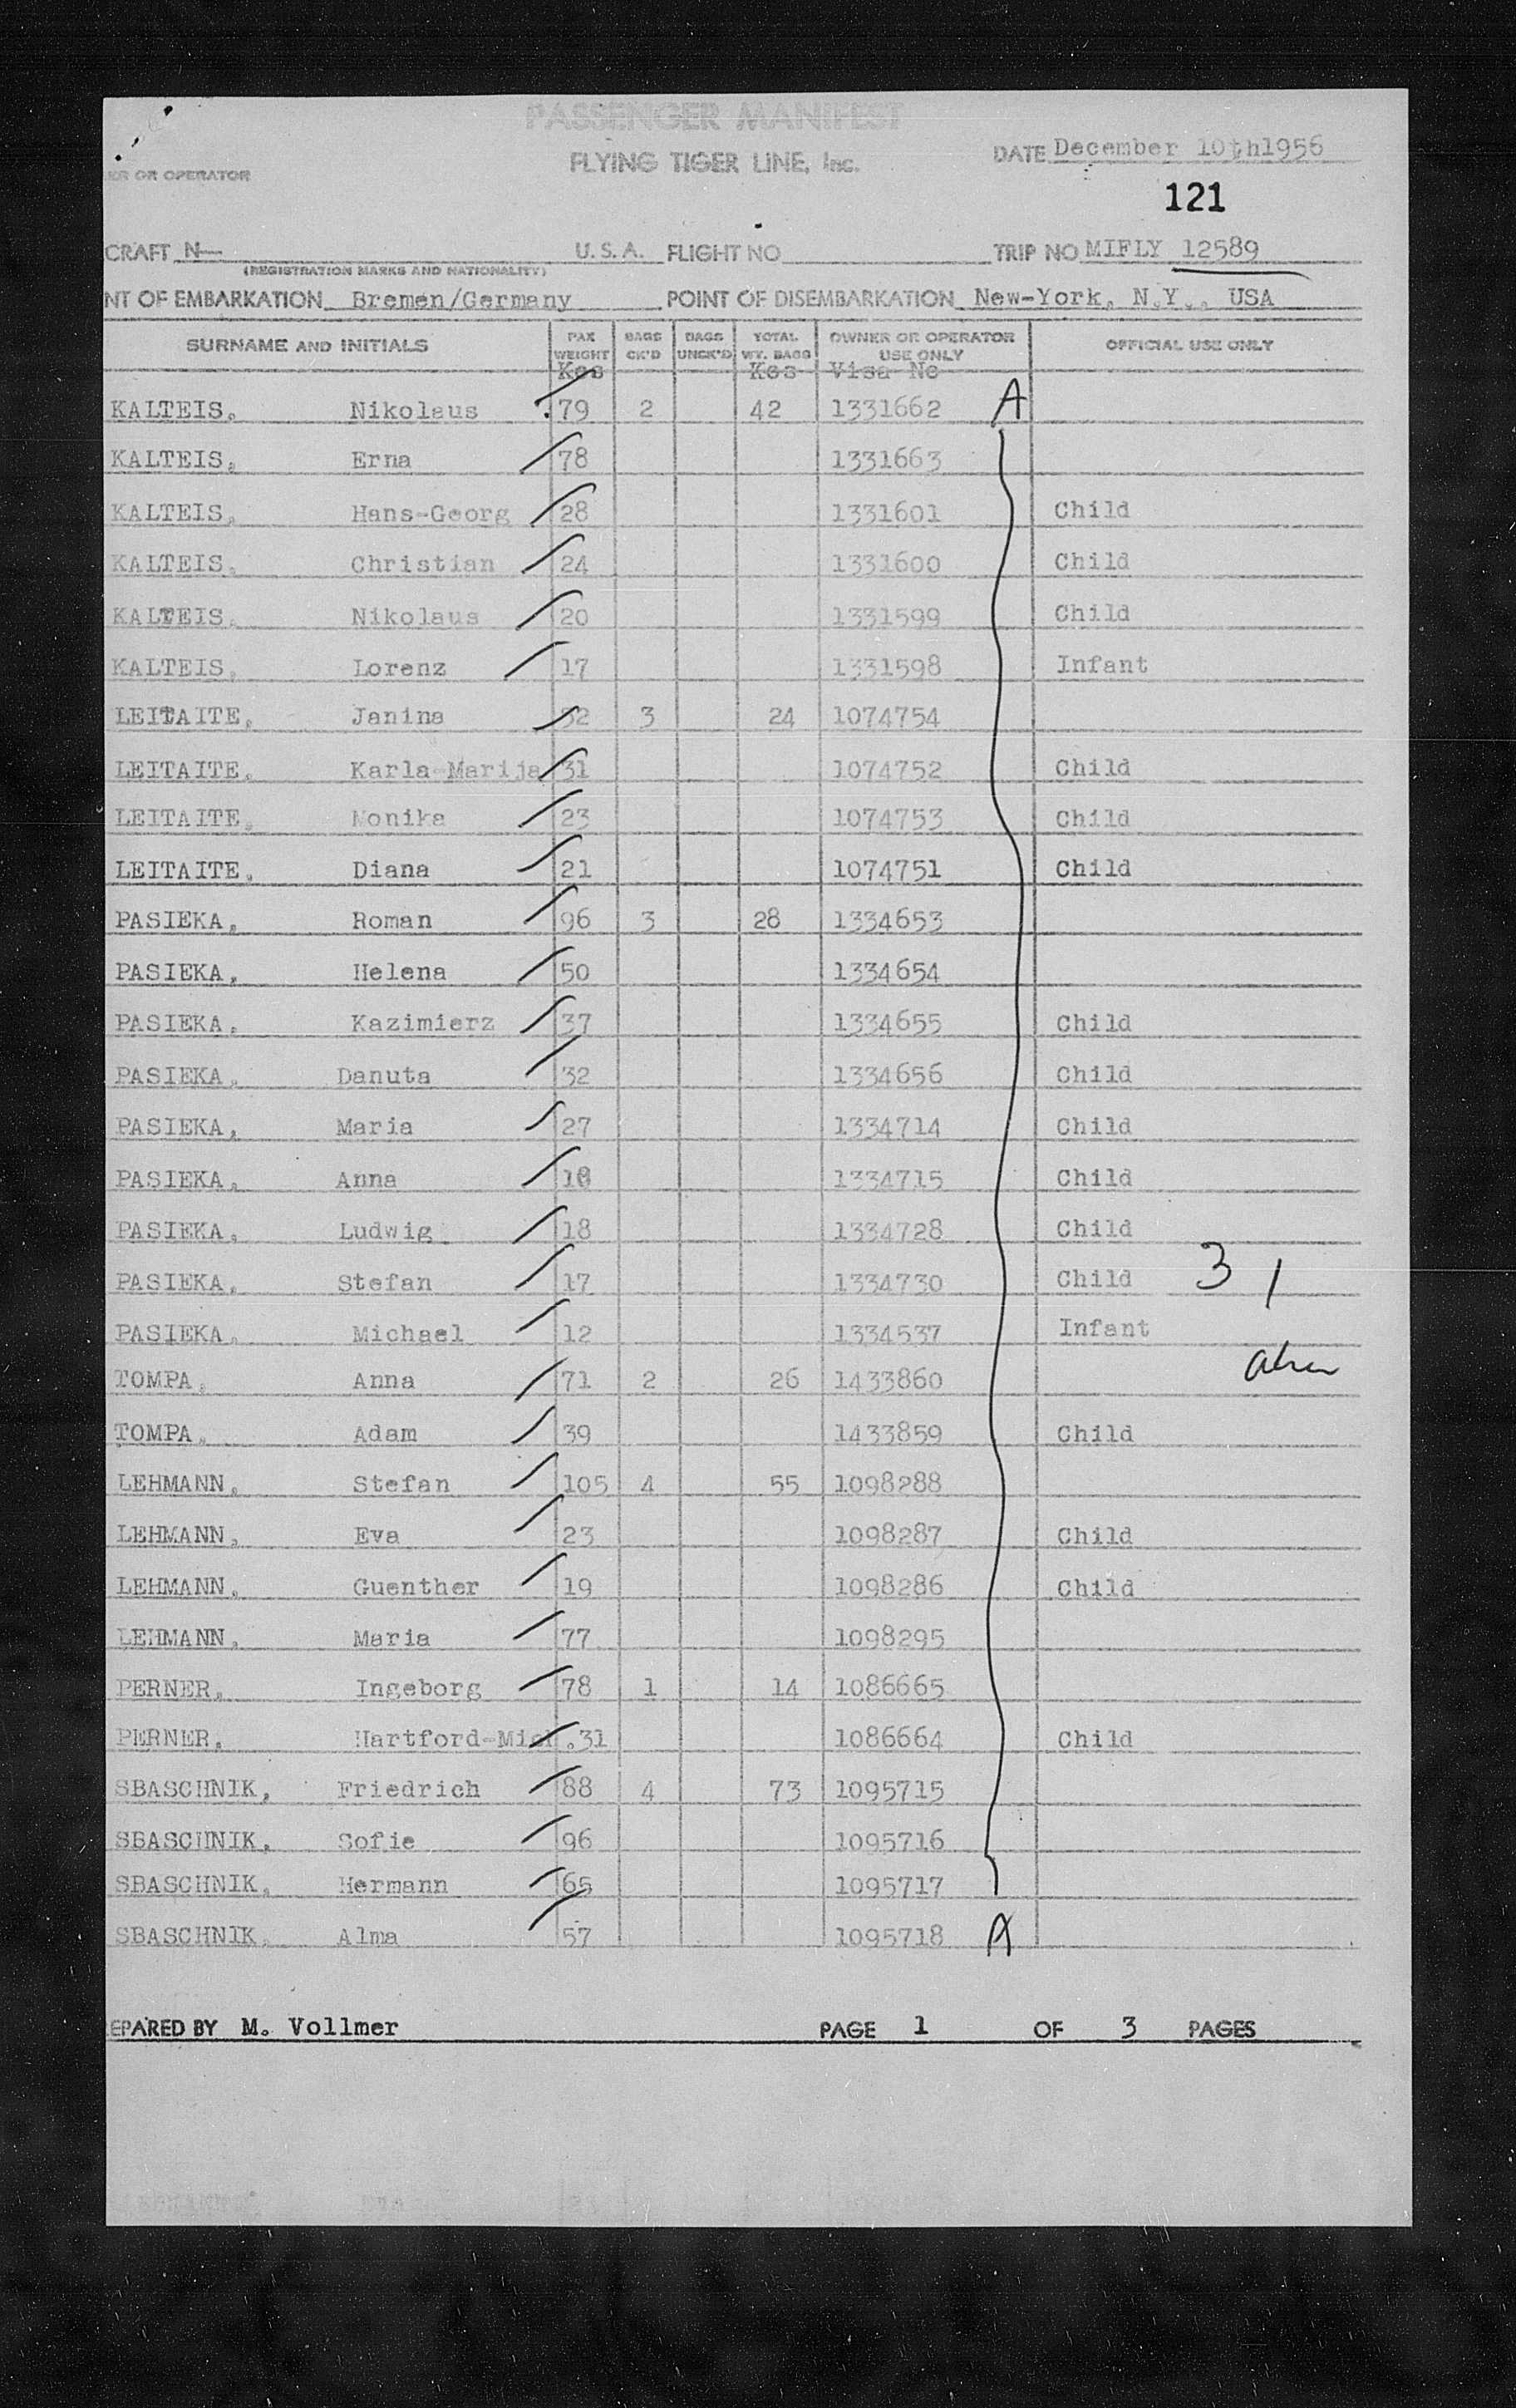 PASSENGER MANIFEST
FLYING TIGER LINE, Inc.
DATE December 10th1956
ER OR OPERATOR
121
CRAFT N— U.S.A. FLIGHT NO TRIP NO MIFLY 12589
(REGISTRATION MARKS AND NATIONALITY)
NT OF EMBARKATION Bremen/Germany POINT OF DISEMBARKATION New-York, N.Y., USA
SURNAME AND INITIALS PAX WEIGHT BAGS CK'D BAGS UNCK'D TOTAL WT. BAGG OWNER OR OPERATOR USE ONLY OFFICIAL USE ONLY
Kgs Kgs Visa No
KALTEIS, Nikolaus 79 2 42 1331662 A
KALTEIS, Erna 78 1331663
KALTEIS, Hans-Georg 28 1331601 Child
KALTEIS, Christian 24 1331600 Child
KALTEIS, Nikolaus 20 1331599 Child
KALTEIS, Lorenz 17 1331598 Infant
LEITAITE, Janina 52 3 24 1074754
LEITAITE, Karla-Marija 31 1074752 Child
LEITAITE, Monika 23 1074753 Child
LEITAITE, Diana 21 1074751 Child
PASIEKA, Roman 96 3 28 1334653
PASIEKA, Helena 50 1334654
PASIEKA, Kazimierz 37 1334655 Child
PASIEKA, Danuta 32 1334656 Child
PASIEKA, Maria 27 1334714 Child
PASIEKA, Anna 1334715 Child
PASIEKA, Ludwig 18 1334728 Child
PASIEKA, Stefan 17 1334730 Child 31
PASIEKA, Michael 12 1334537 Infant
TOMPA, Anna 71 2 26 1433860
TOMPA, Adam 39 1433859 Child
LEHMANN, Stefan 105 4 55 1098288
LEHMANN, Eva 23 1098287 Child
LEHMANN, Guenther 19 1098286 Child
LEHMANN, Maria 77 1098295
PERNER, Ingeborg 78 1 14 1086665
PERNER, Hartford-Mich. 31 1086664 Child
SBASCHNIK, Friedrich 88 4 73 1095715
SBASCHNIK, Sofie 96 1095716
SBASCHNIK, Hermann 65 1095717
SBASCHNIK, Alma 57 1095718 A
EPARED BY M. Vollmer PAGE 1 OF 3 PAGES